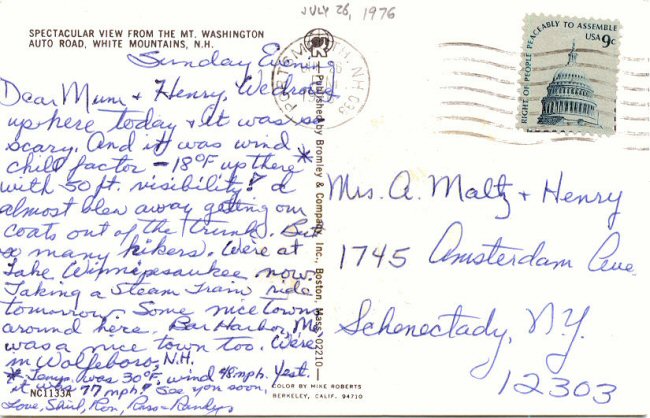 JULY 26, 1976
SPECTACULAR VIEW FROM THE MT. WASHINGTON
AUTO ROAD, WHITE MOUNTAINS, N.H.
Sunday Evening
Dear Mum + Henry, We drove
up here today + it was so
scary. And it was wind *
chill factor - 18°F up there
with 50 ft. visibility! I
almost blew away getting our
coats out of the trunk. But
so many hikers. We're at
Lake Winnipesaukee now.
Taking a Steam Train ride
tomorrow. Some nice towns
around here. Bar Harbor, Me.
was a nice town too. We're
in Wolfeboro, N.H.
* Temp. was 30°F, wind 48 mph. Yest.
it was 77 mph! See you soon,
Love, Shirl, Ron,
NC1133A
Published by Bromley & Company, Inc., Boston, Mass. 02210
COLOR BY MIKE ROBERTS
BERKELEY, CALIF. 94710
RIGHT OF PEOPLE PEACEABLY TO ASSEMBLE
USA 9c
Mrs. A. Maltz + Henry
1745 Amsterdam Ave
Schenectady, N.Y.
12303